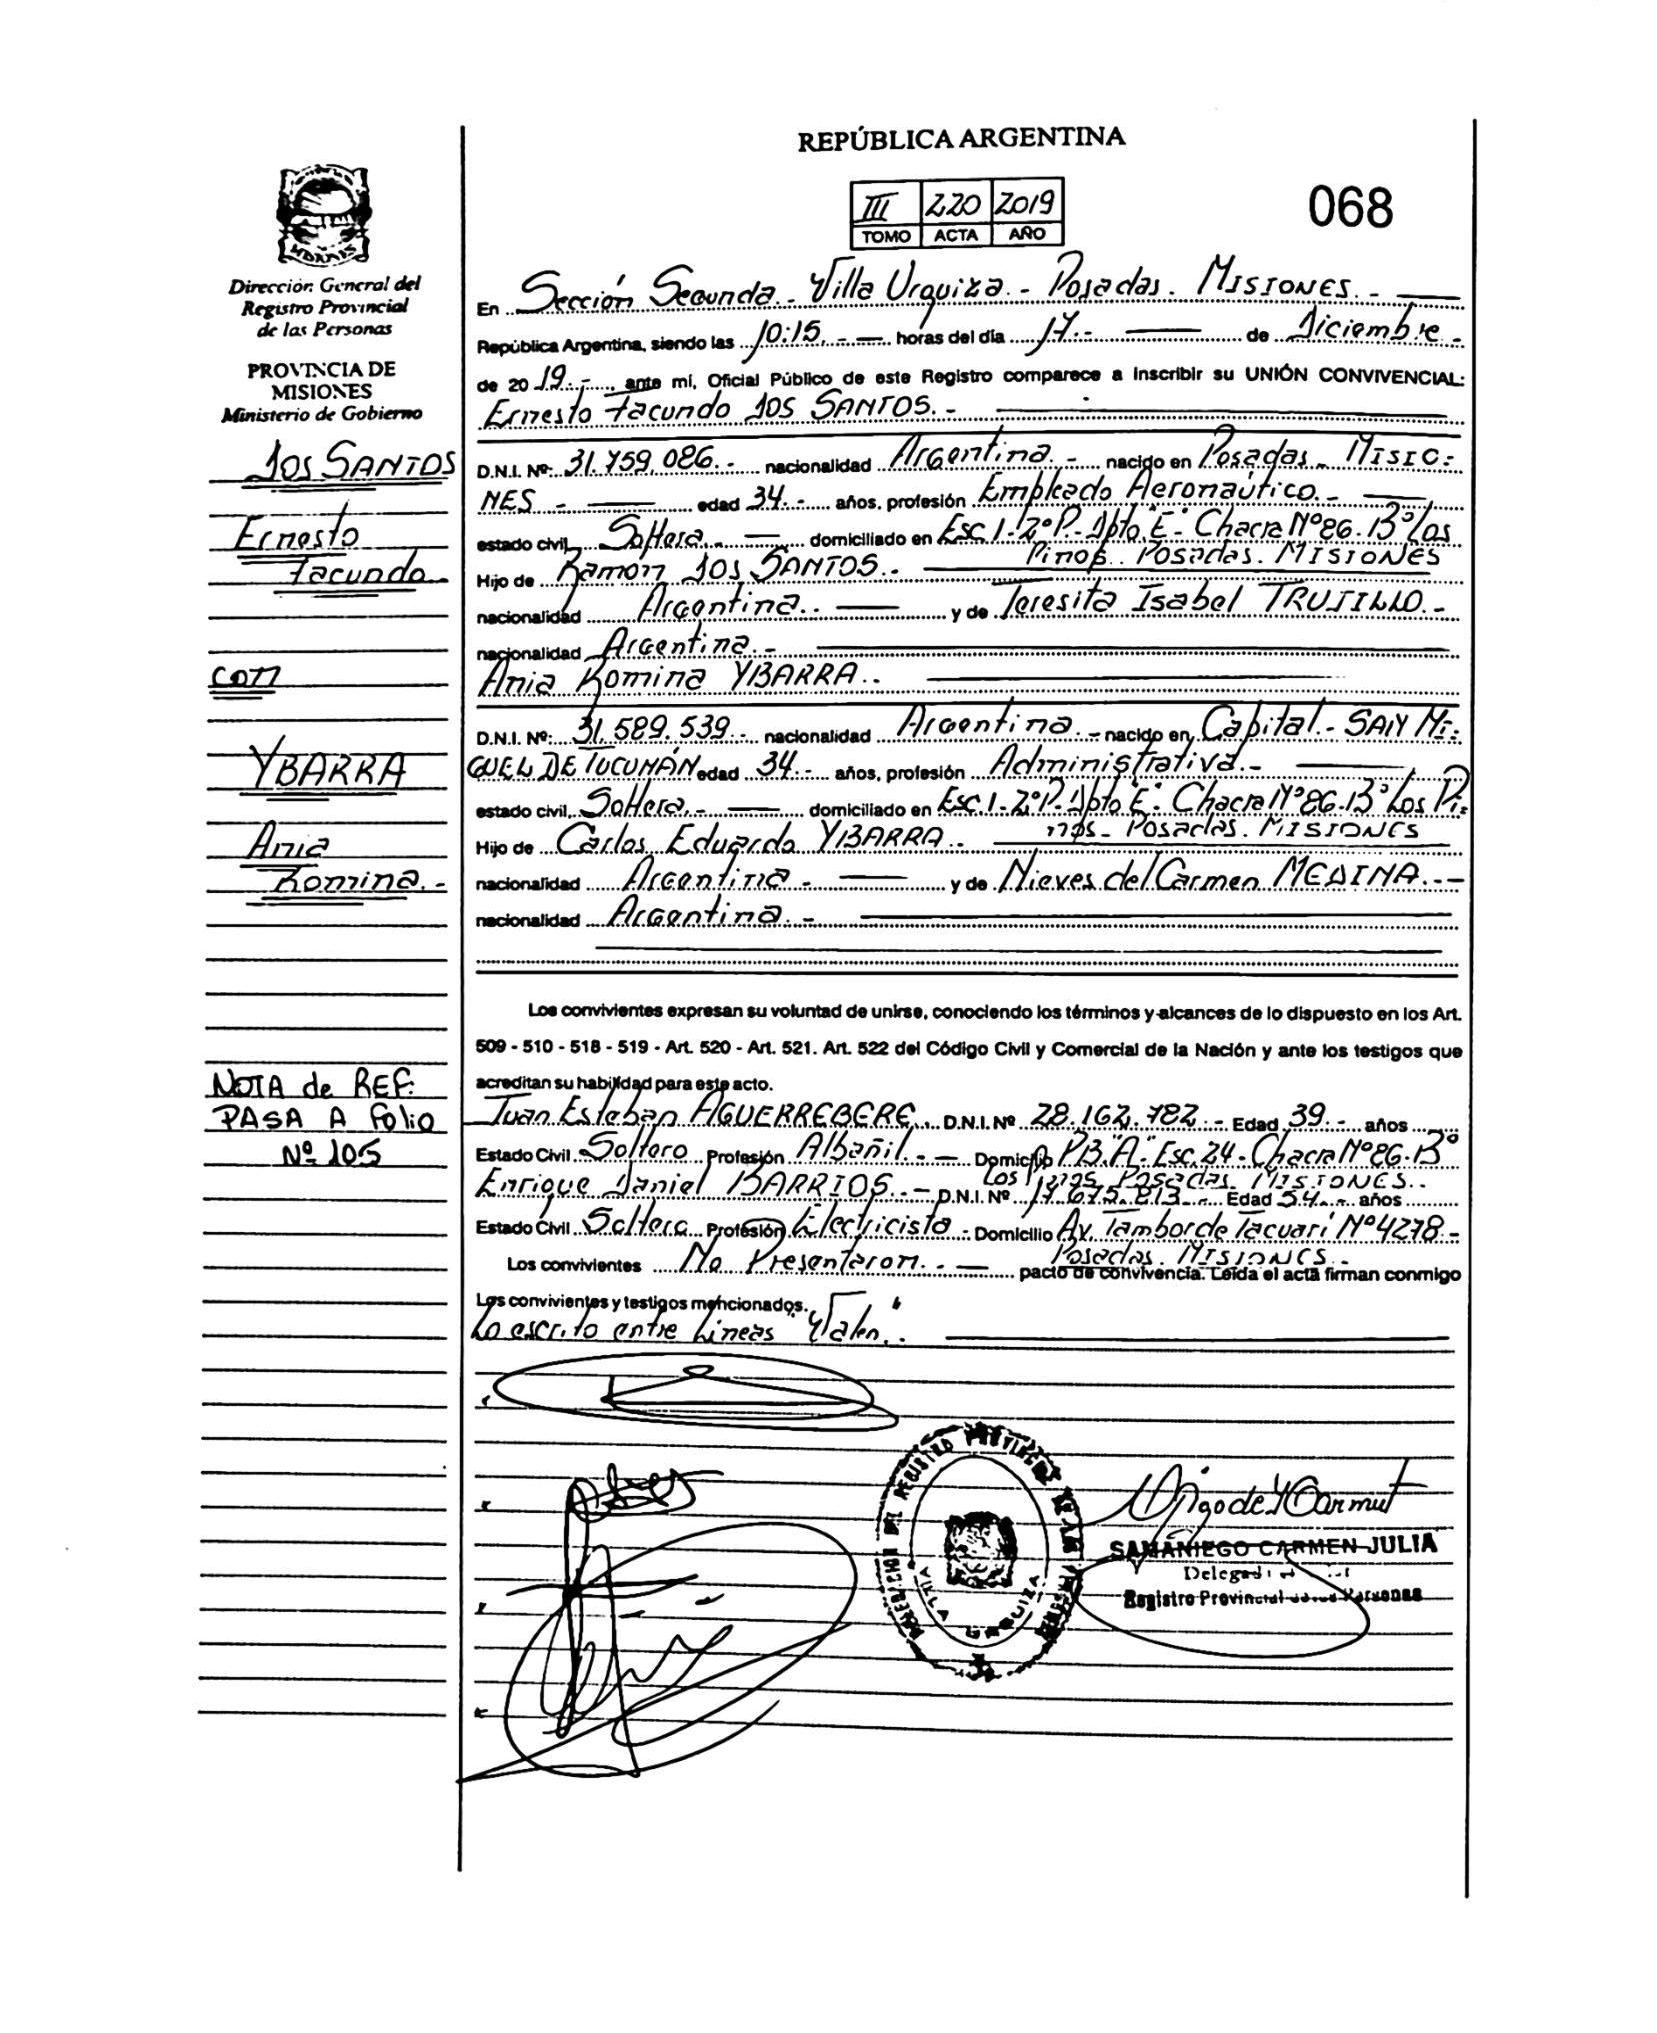 REPÚBLICA ARGENTINA
III 220 2019
TOMO ACTA AÑO
068
Dirección General del
Registro Provincial
de las Personas
PROVINCIA DE
MISIONES
Ministerio de Gobierno
DOS SANTOS
Ernesto
Facundo
con
YBARRA
Ania
Romina.-
NOTA de REF:
PASA A Folio
Nº 105
En Sección Segunda.- Villa Urquiza.- Posadas. MISIONES.-
República Argentina, siendo las 10:15.- horas del día 17.- de Diciembre.-
de 2019.-, ante mí, Oficial Público de este Registro comparece a inscribir su UNIÓN CONVIVENCIAL:
Ernesto Facundo DOS SANTOS.-
D.N.I. Nº: 31.759.086.- nacionalidad Argentina.- nacido en Posadas.- MISIO-
NES.- edad 34.- años, profesión Empleado Aeronáutico.-
estado civil Soltera.- domiciliado en Esc.1-2ºP.-Dpto."E"-Chacra Nº86.Bº Los
Pinos. Posadas. MISIONES
Hijo de Ramón DOS SANTOS.-
nacionalidad Argentina.- y de Teresita Isabel TRUJILLO.-
nacionalidad Argentina.-
Ania Romina YBARRA.-
D.N.I. Nº: 31.589.539.- nacionalidad Argentina.- nacido en Capital.- SAN MI-
GUEL DE TUCUMÁN edad 34.- años, profesión Administrativa.-
estado civil, Soltera.- domiciliado en Esc.1-2ºP.-Dpto"E"-Chacra Nº86.Bº Los Pi-
nos- Posadas. MISIONES
Hijo de Carlos Eduardo YBARRA.-
nacionalidad Argentina.- y de Nieves del Carmen MEDINA.-
nacionalidad Argentina.-
Los convivientes expresan su voluntad de unirse, conociendo los términos y alcances de lo dispuesto en los Art.
509 - 510 - 518 - 519 - Art. 520 - Art. 521. Art. 522 del Código Civil y Comercial de la Nación y ante los testigos que
acreditan su habilidad para este acto.
Juan Esteban AGUERREBERE. D.N.I. Nº 28.162.782.- Edad 39.- años
Estado Civil Soltero Profesión Albañil.- Domicilio PB."A"-Esc.24-Chacra Nº86.Bº
Los Pinos Posadas. MISIONES.
Enrique Daniel BARRIOS.- D.N.I. Nº 17.675.813.- Edad 54.- años
Estado Civil Soltero Profesión Electricista - Domicilio Av. Tambor de Tacuarí Nº4278-
Posadas. MISIONES.-
Los convivientes No Presentaron.- pacto de convivencia. Leída el acta firman conmigo
Los convivientes y testigos mencionados.
Lo escrito entre Líneas "Valen".
SAMANIEGO CARMEN JULIA
Registro Provincial de las Personas